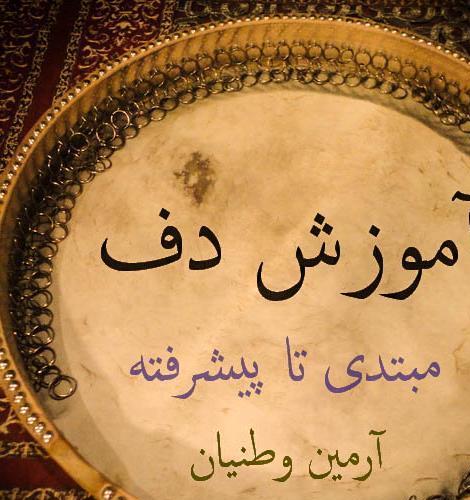 آموزش دف
مبتدی تا پیشرفته
آرمین وطنیان